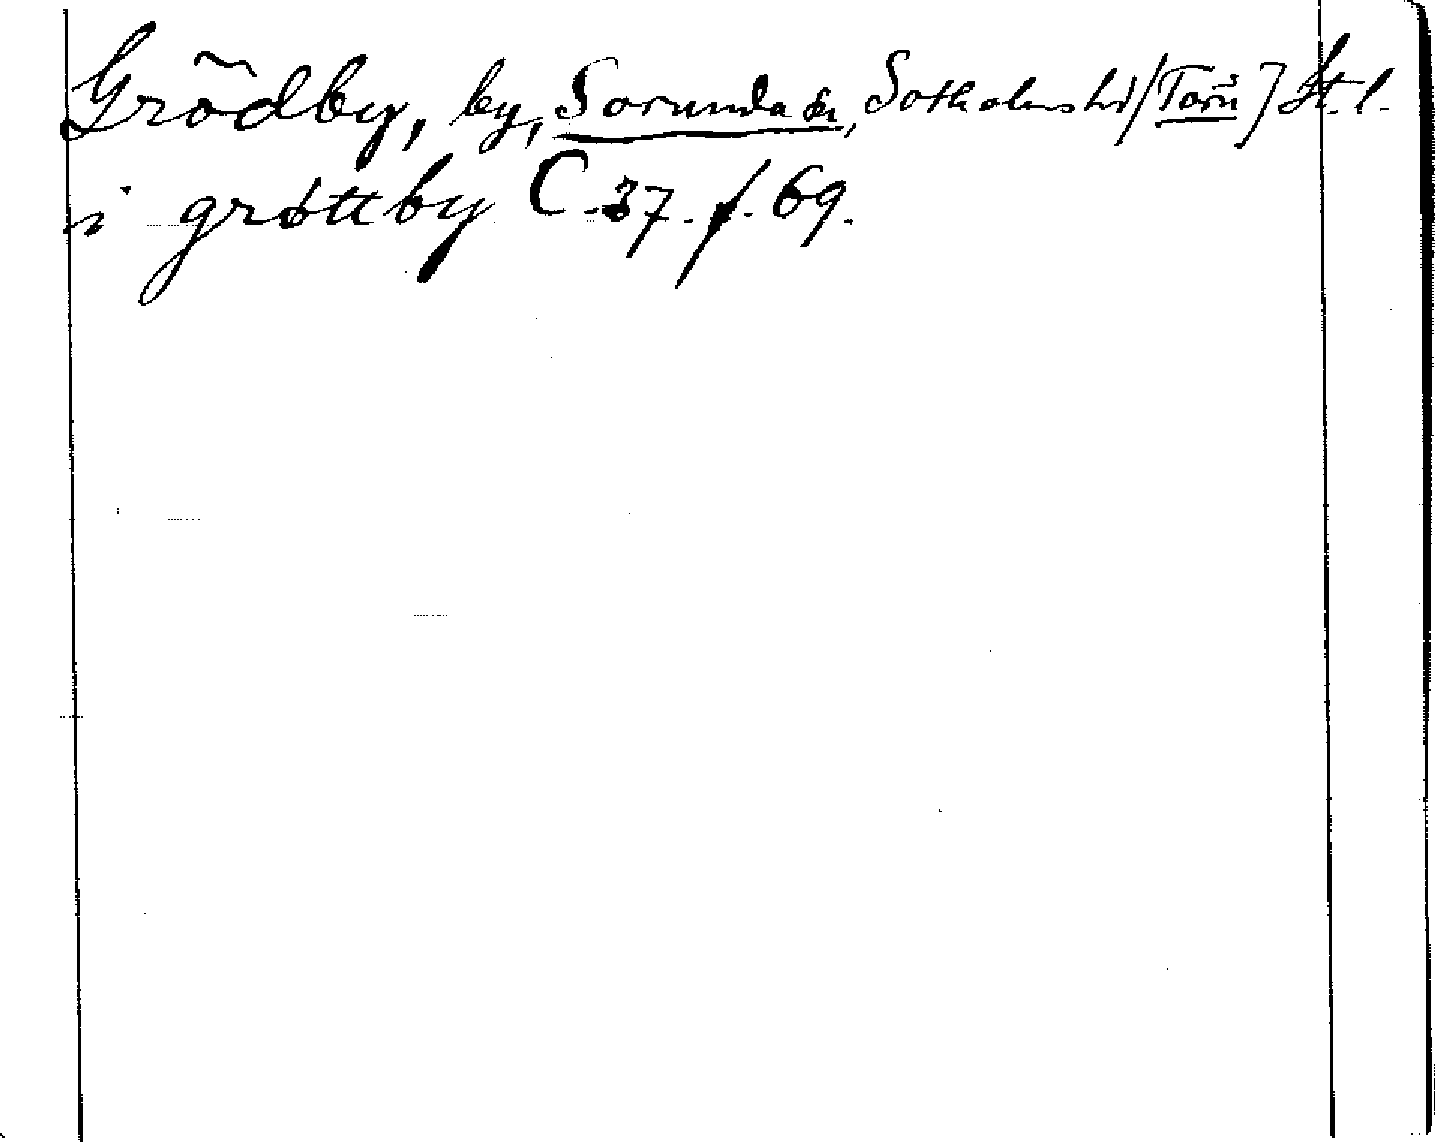 Grödby, by, Sorunda sn, Sotholms hd [Törn] St. l.
i grøttby C. 37. f. 69.